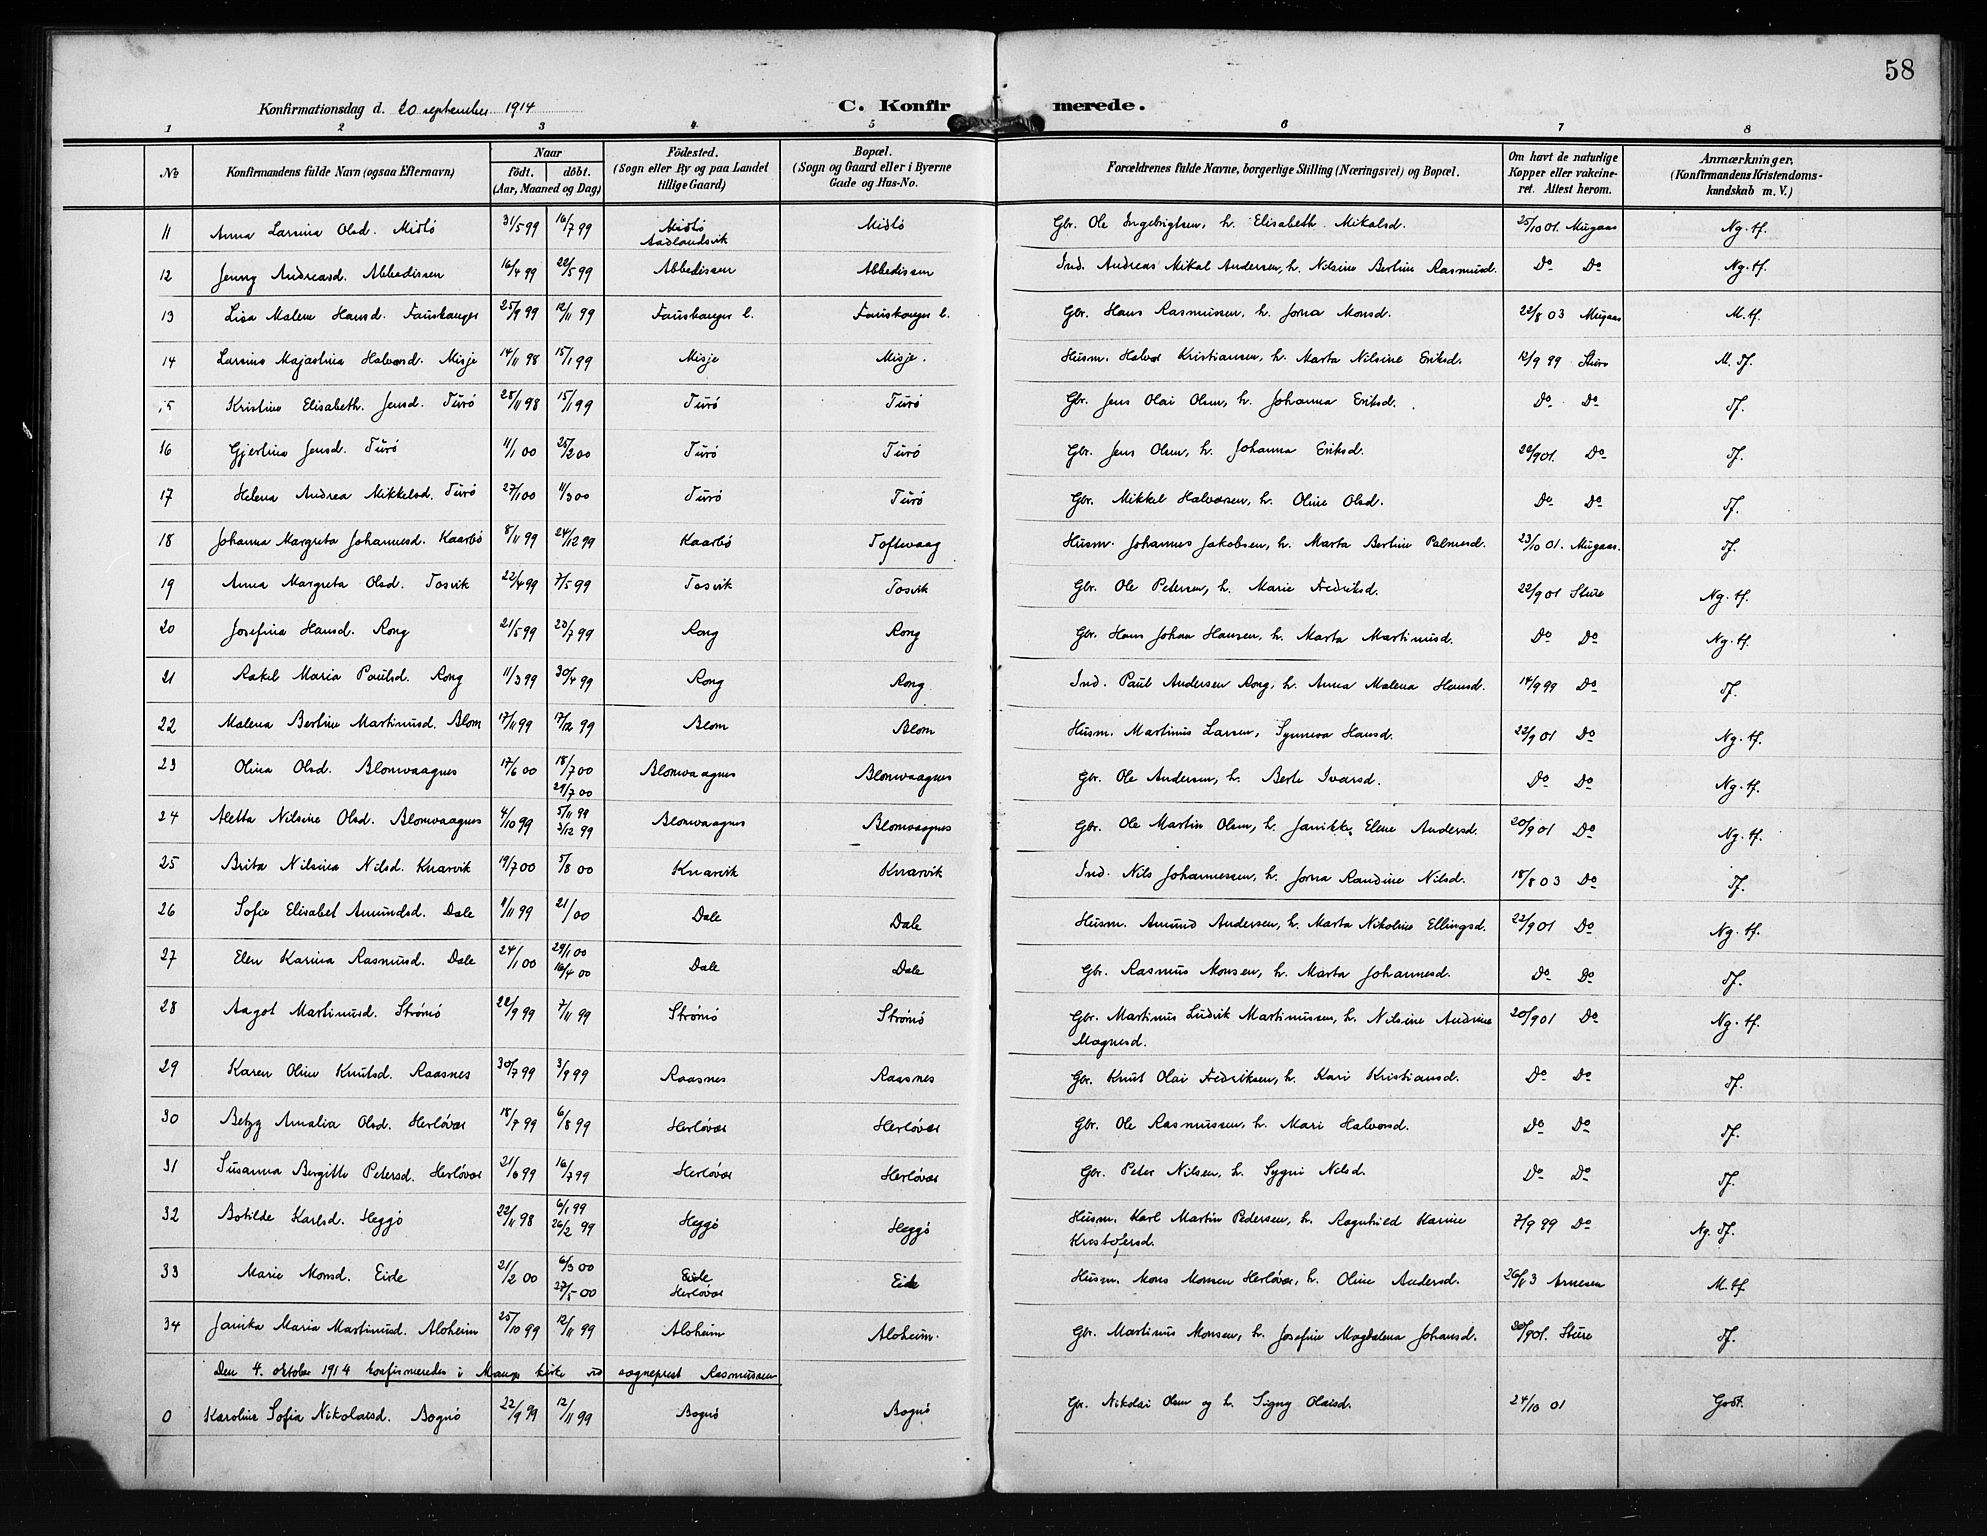 58
Konfirmationsdag d. 20 september 1914 C. Konfirmerede.
1 2 3 4 5 6 7 8
No Konfirmandens fulde Navn (ogsaa Efternavn) Naar født. døbt. (Aar, Maaned og Dag) Fødested. (Sogn eller By og paa Landet tillige Gaard) Bopæl. (Sogn og Gaard eller i Byerne Gade og Hus-No. Forældrenes fulde Navne, borgerlige Stilling (Næringsvei) og Bopæl. Om havt de naturlige Kopper eller vakcineret. Attest herom. Anmærkninger. (Konfirmandens Kristendomskundskab m. V.)
11 Anna Larsina Olsd. Midtö 31/5 99 16/7 99 Midtö Aadlandsvik Midtö Gbr. Ole Ingebrigtsen, h. Elisabeth Mikalsd. 25/10 01. Mugaas Ng. tf.
12 Jenny Andreasd. Abbedissen 16/4 99 22/5 99 Abbedissen Abbedissen Ind. Andreas Mikal Andersen, h. Nilsine Bertine Rasmusd. Do Do Ng. tf.
13 Lisa Malene Hansd. Fauskanger 25/9 99 12/11 99 Fauskanger l. Fauskanger l. Gbr. Hans Rasmussen, h. Jorna Monsd. 22/8 03 Mugaas M. tf.
14 Larsine Majastina Halvorsd. Misje 14/11 98 15/1 99 Misje Misje. Husm. Halvor Kristiansen, h. Marta Nilsine Eriksd. 12/9 99 Sture M. Tf.
15 Kristine Elisabeth Jensd. Turö 28/11 98 15/1 99 Turö Turö Gbr. Jens Olai Olsen, h. Johanna Eriksd. Do Do Tf.
16 Gjertine Jensd. Turö 11/1 00 25/2 00 Turö Turö Gbr. Jens Olsen, h. Johanna Eriksd. 22/9 01. Do Tf.
17 Helena Andrea Mikkelsd. Turö 27/1 00 11/3 00 Turö Turö Gbr. Mikkel Halvorsen, h. Oline Olsd. Do Do Tf.
18 Johanna Margreta Johannesd. Kaarbö 8/11 99 24/12 99 Kaarbö Toftevaag Husm. Johannes Jakobsen, h. Marta Bertine Palmesd. 23/10 01. Mugaas. Tf.
19 Anna Margreta Olsd. Tosvik 22/4 99 7/5 99 Tosvik Tosvik Gbr. Ole Petersen, h. Marie Fredriksd. 22/9 01 Sture Ng. tf.
20 Josefine Hansd. Rong 21/5 99 20/7 99 Rong Rong Gbr. Hans Johan Hansen, h. Marta Martinusd. Do Do Ng. tf.
21 Rakel Maria Paulsd. Rong 11/3 99 30/4 99 Rong Rong Ind. Paul Andersen Rong, h. Anna Malena Hansd. 14/9 99 Do Tf.
22 Malena Bertine Martinusd. Blom 17/11 99 17/12 99 Blom Blom Husm. Martinus Larsen, Synneva Hansd. 22/9 01 Do Ng. tf.
23 Olina Olsd. Blomvaagnes 17/6 00 18/7 00 29/7 00 Blomvaagnes Blomvaagnes Gbr. Ole Andersen, h. Berte Ivarsd. Do Do Ng. tf.
24 Aletta Nilsine Olsd. Blomvaagnes 4/10 99 5/11 99 3/12 99 Blomvaagnes Blomvaagnes Gbr. Ole Martin Olsen, h. Janikke Elene Andersd. 20/9 01 Do Ng. tf.
25 Brita Nilsina Nilsd. Knarvik 19/7 00 5/8 00 Knarvik Knarvik Ind. Nils Johannessen, h. Jorna Randine Nilsd. 18/8 03 Do Tf.
26 Sofie Elisabet Amundsd. Dale 9/11 99 21/1 00 Dale Dale Husm. Amund Andersen, h. Marta Nikoline Ellingsd. 22/9 01 Do Ng. tf.
27 Elen Karina Rasmusd. Dale 24/1 00 29/1 00 16/4 00 Dale Dale Gbr. Rasmus Monsen, h. Marta Johannesd. Do Do Tf.
28 Aagot Martinusd. Strömö 22/9 99 7/11 99 Strömö Strömö Gbr. Martinus Ludvik Martinussen, h. Nilsine Andrine Magnesd. 20/9 01 Do Ng. tf.
29 Karen Oline Knutsd. Raasnes 30/7 99 3/9 99 Raasnes Raasnes Gbr. Knut Olai Fredriksen, h. Kari Kristiansd. Do Do Tf.
30 Betzy Amalia Olsd. Herlövær 18/7 99 6/8 99 Herlövær Herlövær Gbr. Ole Rasmussen, h. Mari Halvorsd. Do Do Tf.
31 Susanna Bergitte Petersd. Herlövær 21/6 99 16/7 99 Herlövær Herlövær Gbr. Peter Nilsen, h. Sygni Nilsd. Do Do Tf.
32 Botilde Karlsd. Heggö 22/11 98 6/1 99 26/2 99 Heggö Heggö Husm. Karl Martin Pedersen, h. Ragnhild Karine Kristofersd. 7/9 99 Do Ng. Tf.
33 Marie Monsd. Eide 21/2 00 6/3 00 27/5 00 Eide Herlövær Eide Husm. Mons Monsen Herlövær, h. Oline Andersd. 26/11 3 Arnesen M. tf
34 Janika Maria Martinusd. Aloheim 25/10 99 12/11 99 Aloheim Aloheim. Gbr. Martinus Monsen, h. Josefine Magdalena Johansd. 20/9 01. Sture Tf.
Den 4. oktober 1914 konfirmeredes i Manger kirke ved sogneprest Rasmussen
0 Karoline Sofia Nikolaisd. Bognö 22/9 99 12/11 99 Bognö Bognö Gbr. Nikolai Olsen og h. Signy Olaisd. 24/10 01 Godt.